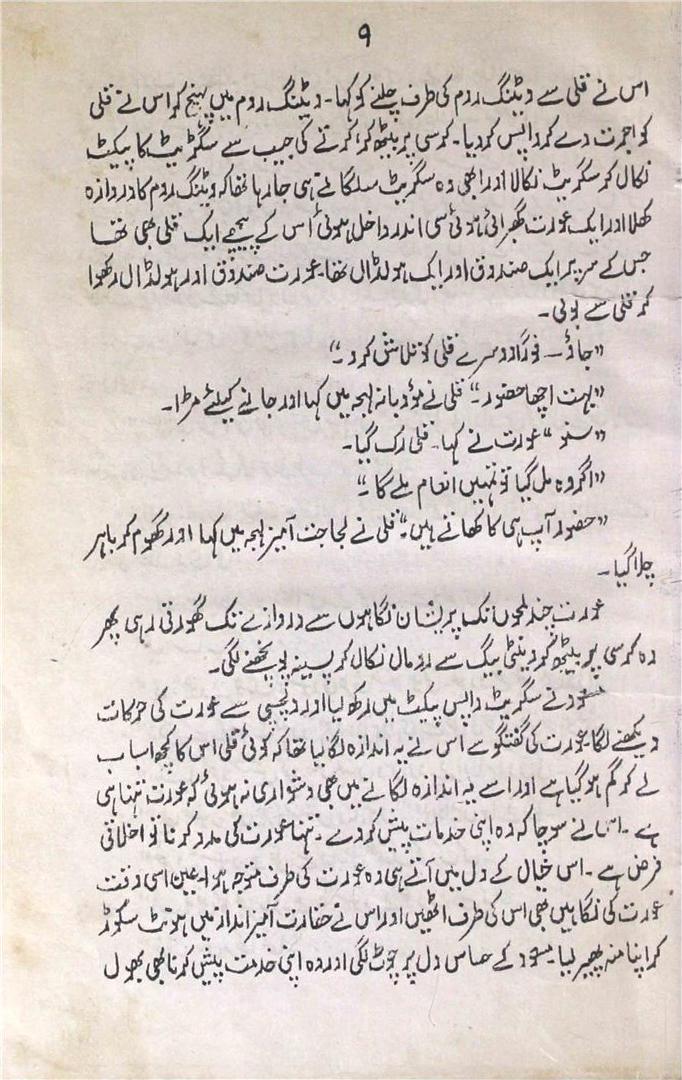 ۹
اس نے قلی سے ویٹنگ روم کی طرف چلنے کو کہا۔ ویٹنگ روم میں پہنچ کر اس نے قلی
کو اجرت دے کر واپس کر دیا۔ کرسی پر بیٹھ کر، کرتے کی جیب سے سگریٹ کا پیکٹ
نکال کر سگریٹ نکالا اور ابھی وہ سگریٹ سلگانے ہی جا رہا تھا کہ ویٹنگ روم کا دروازہ
کھلا اور ایک عورت گھبرائی ہوئی سی اندر داخل ہوئی اس کے پیچھے ایک قلی بھی تھا
جس کے سر پر ایک صندوق اور ایک ہولڈال تھا۔ عورت صندوق اور ہولڈال رکھوا
کر قلی سے بولی۔
”جاؤ۔ فوراً دوسرے قلی کو تلاش کرو۔“
”بہت اچھا حضور۔“ قلی نے مؤدبانہ لہجہ میں کہا اور جانے کیلئے مڑا۔
”سنو“ عورت نے کہا۔ قلی رک گیا۔
”اگر وہ مل گیا تو تمہیں انعام ملے گا۔“
”حضور آپ ہی کا کھاتے ہیں۔“ قلی نے لجاجت آمیز لہجہ میں کہا اور گھوم کر باہر
چلا گیا۔
عورت چند لمحوں تک پریشان نگاہوں سے دروازے تک گھورتی رہی پھر
وہ کرسی پر بیٹھ کر وینٹی بیگ سے رومال نکال کر پسینہ پونچھنے لگی۔
سعود نے سگریٹ واپس پیکٹ میں رکھ لیا اور دلچسپی سے عورت کی حرکات
دیکھنے لگا۔ عورت کی گفتگو سے اس نے یہ اندازہ لگا لیا تھا کہ کوئی قلی اس کا کچھ اسباب
لے کر گم ہو گیا ہے اور اسے یہ اندازہ لگانے میں بھی دشواری نہ ہوئی کہ عورت تنہا ہی
ہے۔ اس نے سوچا کہ وہ اپنی خدمات پیش کر دے۔ تنہا عورت کی مدد کرنا تو اخلاقی
فرض ہے۔ اس خیال کے دل میں آتے ہی وہ عورت کی طرف متوجہ ہوا۔ عین اسی وقت
عورت کی نگاہیں بھی اس کی طرف اٹھیں اور اس نے حقارت آمیز انداز میں ہونٹ سکوڑ
کر اپنا منہ پھیر لیا۔ سعود کے حساس دل پر چوٹ لگی اور وہ اپنی خدمت پیش کرنا بھی بھول